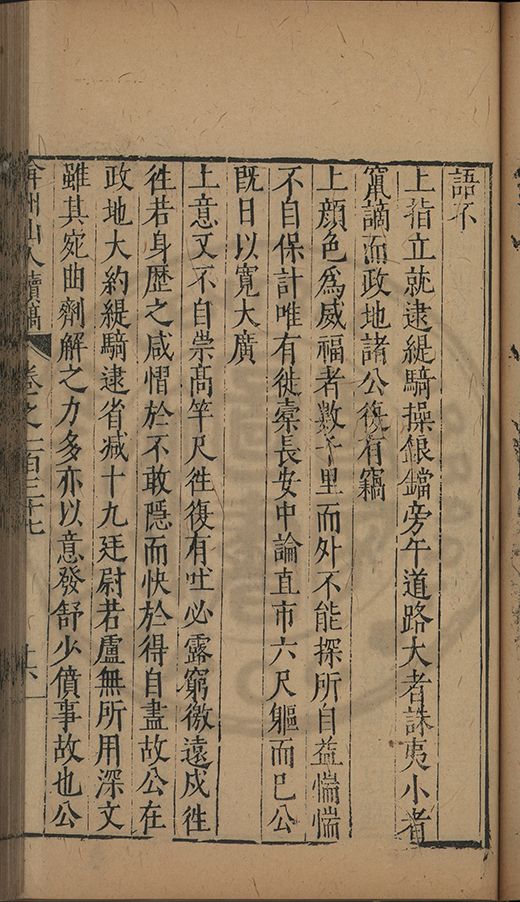 語不
上指立就逮緹騎操銀鐺旁午道路大者誅夷小者
竄謫而政地諸公復有竊
上顔色為威福者數千里而外不能探所自益惴惴
不自保計唯有徙橐長安中論直市六尺軀而巳公
旣日以寛大廣
上意又不自崇髙竿尺徃復有吐必露窮徼遠戍徃
徃若身歴之咸慴於不敢隱而快於得自盡故公在
政地大約緹騎逮省减十九廷尉若盧無所用深文
雖其宛曲劑解之力多亦以意發舒少僨事故也公
弇州山人續稿 卷之一百三十七 十六